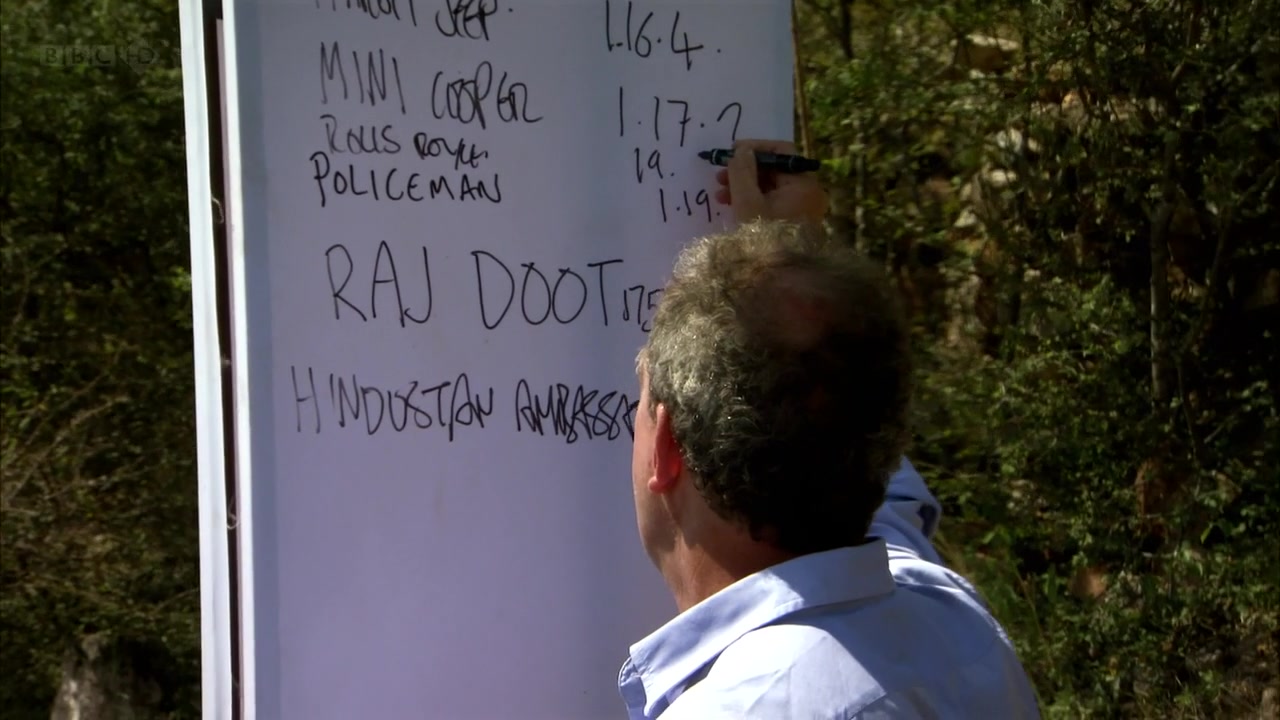 BBC HD
JEEP. 1.16.4.
MINI COOPER 1.17.2
ROLLS ROYCE 19.
POLICEMAN 1.19.
RAJ DOOT 175
HINDUSTAN AMBASSA